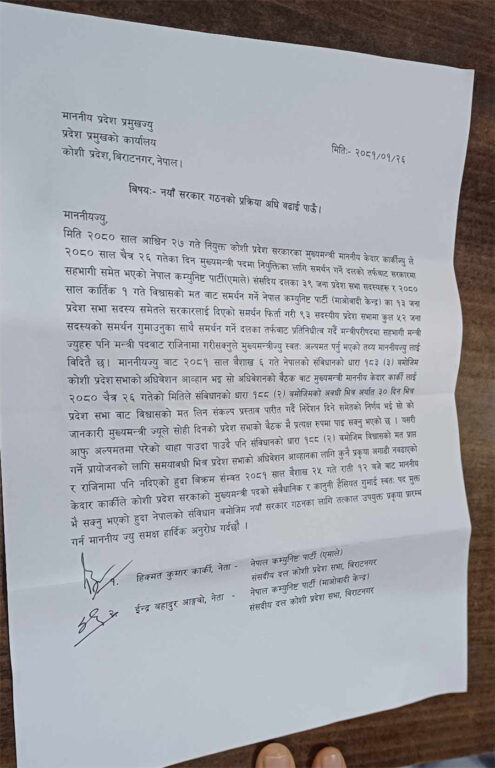 माननीय प्रदेश प्रमुखज्यु
प्रदेश प्रमुखको कार्यालय
कोशी प्रदेश, बिराटनगर, नेपाल।
मिति:- २०८१/०१/२६
बिषय:- नयाँ सरकार गठनको प्रक्रिया अघि बढाई पाऊँ।
माननीयज्यु,
मिति २०८० साल आश्विन २७ गते नियुक्त कोशी प्रदेश सरकारका मुख्यमन्त्री माननीय केदार कार्कीज्यु ले
२०८० साल चैत्र २६ गतेका दिन मुख्यमन्त्री पदमा नियुक्तिका लागि समर्थन गर्ने दलको तर्फबाट सरकारमा
सहभागी समेत भएको नेपाल कम्युनिष्ट पार्टी(एमाले) संसदिय दलका ३९ जना प्रदेश सभा सदस्यहरु र २०८०
साल कार्तिक १ गते विश्वासको मत बाट समर्थन गर्ने नेपाल कम्युनिष्ट पार्टी (माओबादी केन्द्र) का १३ जना
प्रदेश सभा सदस्य समेतले सरकारलाई दिएको समर्थन फिर्ता गरी ९३ सदस्यीय प्रदेश सभामा कुल ५२ जना
सदस्यको समर्थन गुमाउनुका साथै समर्थन गर्ने दलका तर्फबाट प्रतिनिधीत्व गर्दै मन्त्रीपरीषदमा सहभागी मन्त्री
ज्युहरु पनि मन्त्री पदबाट राजिनामा गरीसक्नुले मुख्यमन्त्रीज्यु स्वत: अल्पमत पर्नु भएको तथ्य माननीयज्यु लाई
बिदितै छ। माननीयज्यु बाट २०८१ साल बैशाख ६ गते नेपालको संबिधानको धारा १८३ (३) बमोजिम
कोशी प्रदेश सभाको अधिबेशन आव्हान भइ सो अधिबेशनको बैठक बाट मुख्यमन्त्री माननीय केदार कार्की लाई
२०८० चैत्र २६ गतेको मितिले संबिधानको धारा १८८ (२) बमोजिमको अवधी भित्र अर्थात ३० दिन भित्र
प्रदेश सभा बाट विश्वासको मत लिन संकल्प प्रस्ताव पारीत गर्दै निर्देशन दिने समेतको निर्णय भई सो को
जानकारी मुख्यमन्त्री ज्यूले सोही दिनको प्रदेश सभाको बैठक मै प्रत्यक्ष रुपमा पाइ सक्नु भएको छ। यसरी
आफु अल्पमतमा परेको थाहा पाउदा पाउदै पनि संबिधानको धारा १८८ (२) बमोजिम बिश्वासको मत प्राप्त
गर्ने प्रायोजनको लागि समयाबधी भित्र प्रदेश सभाको अधिबेशन आव्हानका लागि कुनै प्रकृया अगाडी नबढाएको
र राजिनामा पनि नदिएको हुदा बिक्रम संम्वत २०८१ साल बैशाख २५ गते राती १२ बजे बाट माननीय
केदार कार्कीले कोशी प्रदेश सरकारको मुख्यमन्त्री पदको संवैधानिक र कानुनी हैसियत गुमाई स्वत: पद मुक्त
भै सक्नु भएको हुदा नेपालको संबिधान बमोजिम नयाँ सरकार गठनका लागि तत्काल उपयुक्त प्रकृया प्रारम्भ
गर्न माननीय ज्यु समक्ष हार्दिक अनुरोध गर्दछौ ।
१. हिक्मत कुमार कार्की, नेता - नेपाल कम्युनिष्ट पार्टी (एमाले)
संसदीय दल कोशी प्रदेश सभा, बिराटनगर
२ ईन्द्र बहादुर आङबो, नेता - नेपाल कम्युनिष्ट पार्टी (माओबादी केन्द्र)
संसदीय दल कोशी प्रदेश सभा, बिराटनगर